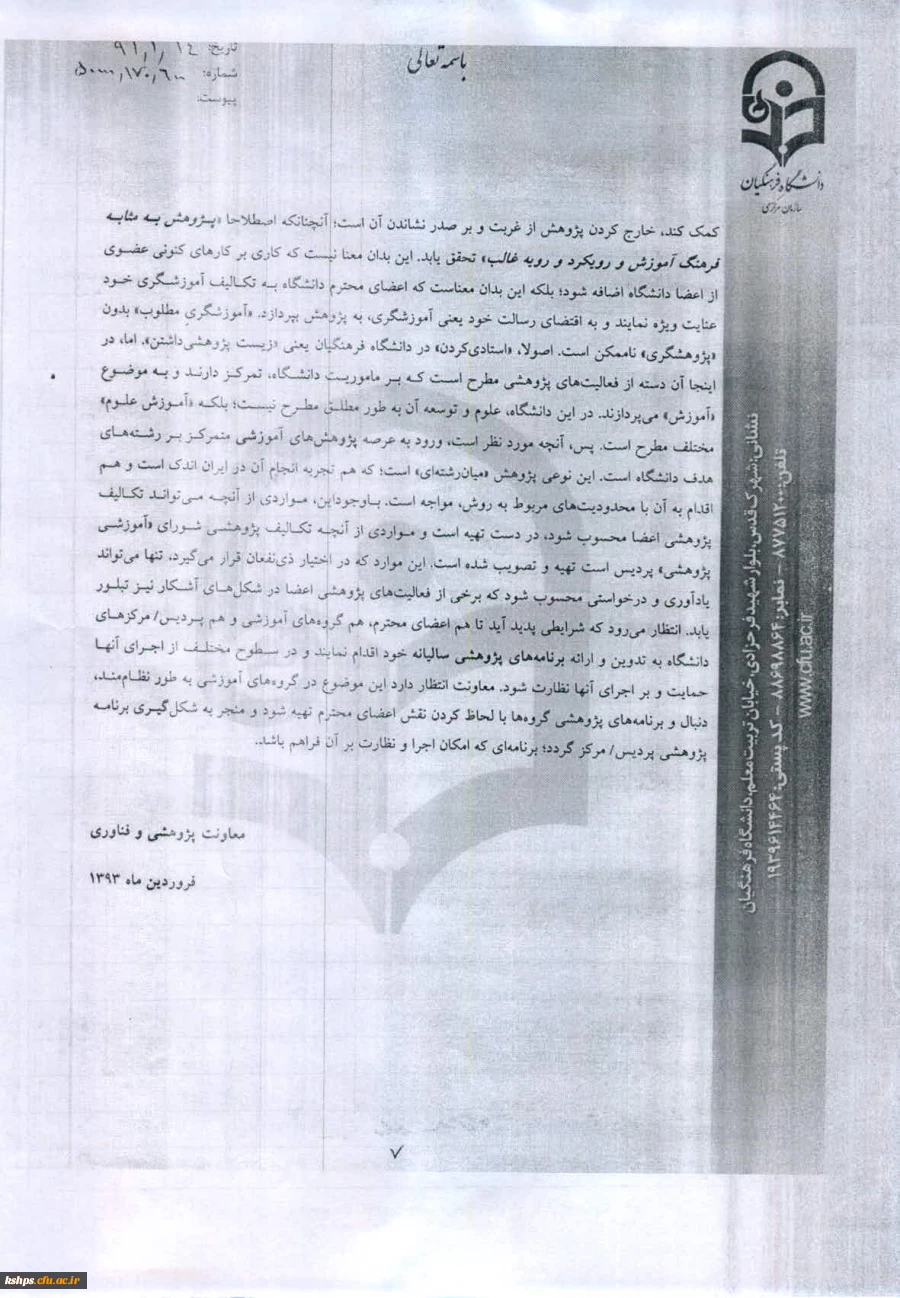 باسمه تعالی
تاریخ: ۹۱٫۱٫۱٤
شماره: ۵۰۰۰۰٫۱۷۰٫۶۰۰
پیوست:
دانشگاه فرهنگیان
سازمان مرکزی
کمک کند، خارج کردن پژوهش از غربت و بر صدر نشاندن آن است؛ آنچنانکه اصطلاحا «پژوهش به مثابه
فرهنگ آموزش و رویکرد و رویه غالب» تحقق یابد. این بدان معنا نیست که کاری بر کارهای کنونی عضوی
از اعضا دانشگاه اضافه شود؛ بلکه این بدان معناست که اعضای محترم دانشگاه به تکالیف آموزشگری خود
عنایت ویژه نمایند و به اقتضای رسالت خود یعنی آموزشگری، به پژوهش بپردازد. «آموزشگریِ مطلوب» بدون
«پژوهشگری» ناممکن است. اصولا، «استادی‌کردن» در دانشگاه فرهنگیان یعنی «زیست پژوهشی‌داشتن». اما، در
اینجا آن دسته از فعالیت‌های پژوهشی مطرح است که بر ماموریت دانشگاه، تمرکز دارند و به موضوع
«آموزش» می‌پردازند. در این دانشگاه، علوم و توسعه آن به طور مطلق مطرح نیست؛ بلکه «آموزش علوم»
مختلف مطرح است. پس، آنچه مورد نظر است، ورود به عرصه پژوهش‌های آموزشی متمرکز بر رشته‌های
هدف دانشگاه است. این نوعی پژوهش «میان‌رشته‌ای» است؛ که هم تجربه انجام آن در ایران اندک است و هم
اقدام به آن با محدودیت‌های مربوط به روش، مواجه است. باوجوداین، مواردی از آنچه می‌تواند تکالیف
پژوهشی اعضا محسوب شود، در دست تهیه است و مواردی از آنچه تکالیف پژوهشی شورای «آموزشی
پژوهشی» پردیس است تهیه و تصویب شده است. این موارد که در اختیار ذی‌نفعان قرار می‌گیرد، تنها می‌تواند
یادآوری و درخواستی محسوب شود که برخی از فعالیت‌های پژوهشی اعضا در شکل‌های آشکار نیز تبلور
یابد. انتظار می‌رود که شرایطی پدید آید تا هم اعضای محترم، هم گروه‌های آموزشی و هم پردیس/ مرکزهای
دانشگاه به تدوین و ارائه برنامه‌های پژوهشی سالیانه خود اقدام نمایند و در سطوح مختلف از اجرای آنها
حمایت و بر اجرای آنها نظارت شود. معاونت انتظار دارد این موضوع در گروه‌های آموزشی به طور نظام‌مند،
دنبال و برنامه‌های پژوهشی گروه‌ها با لحاظ کردن نقش اعضای محترم تهیه شود و منجر به شکل‌گیری برنامه
پژوهشی پردیس/ مرکز گردد؛ برنامه‌ای که امکان اجرا و نظارت بر آن فراهم باشد.
معاونت پژوهشی و فناوری
فروردین ماه ۱۳۹۳
نشانی: شهرک قدس، بلوار شهید فرحزادی، خیابان تربیت معلم، دانشگاه فرهنگیان
تلفن: ۸۷۷۵۱۲۰۰ – نمابر: ۸۸۶۹۸۸۶۴ – کد پستی: ۱۹۳۹۶۱۴۴۶۴
www.cfu.ac.ir
۷
hshps.cfu.ac.ir